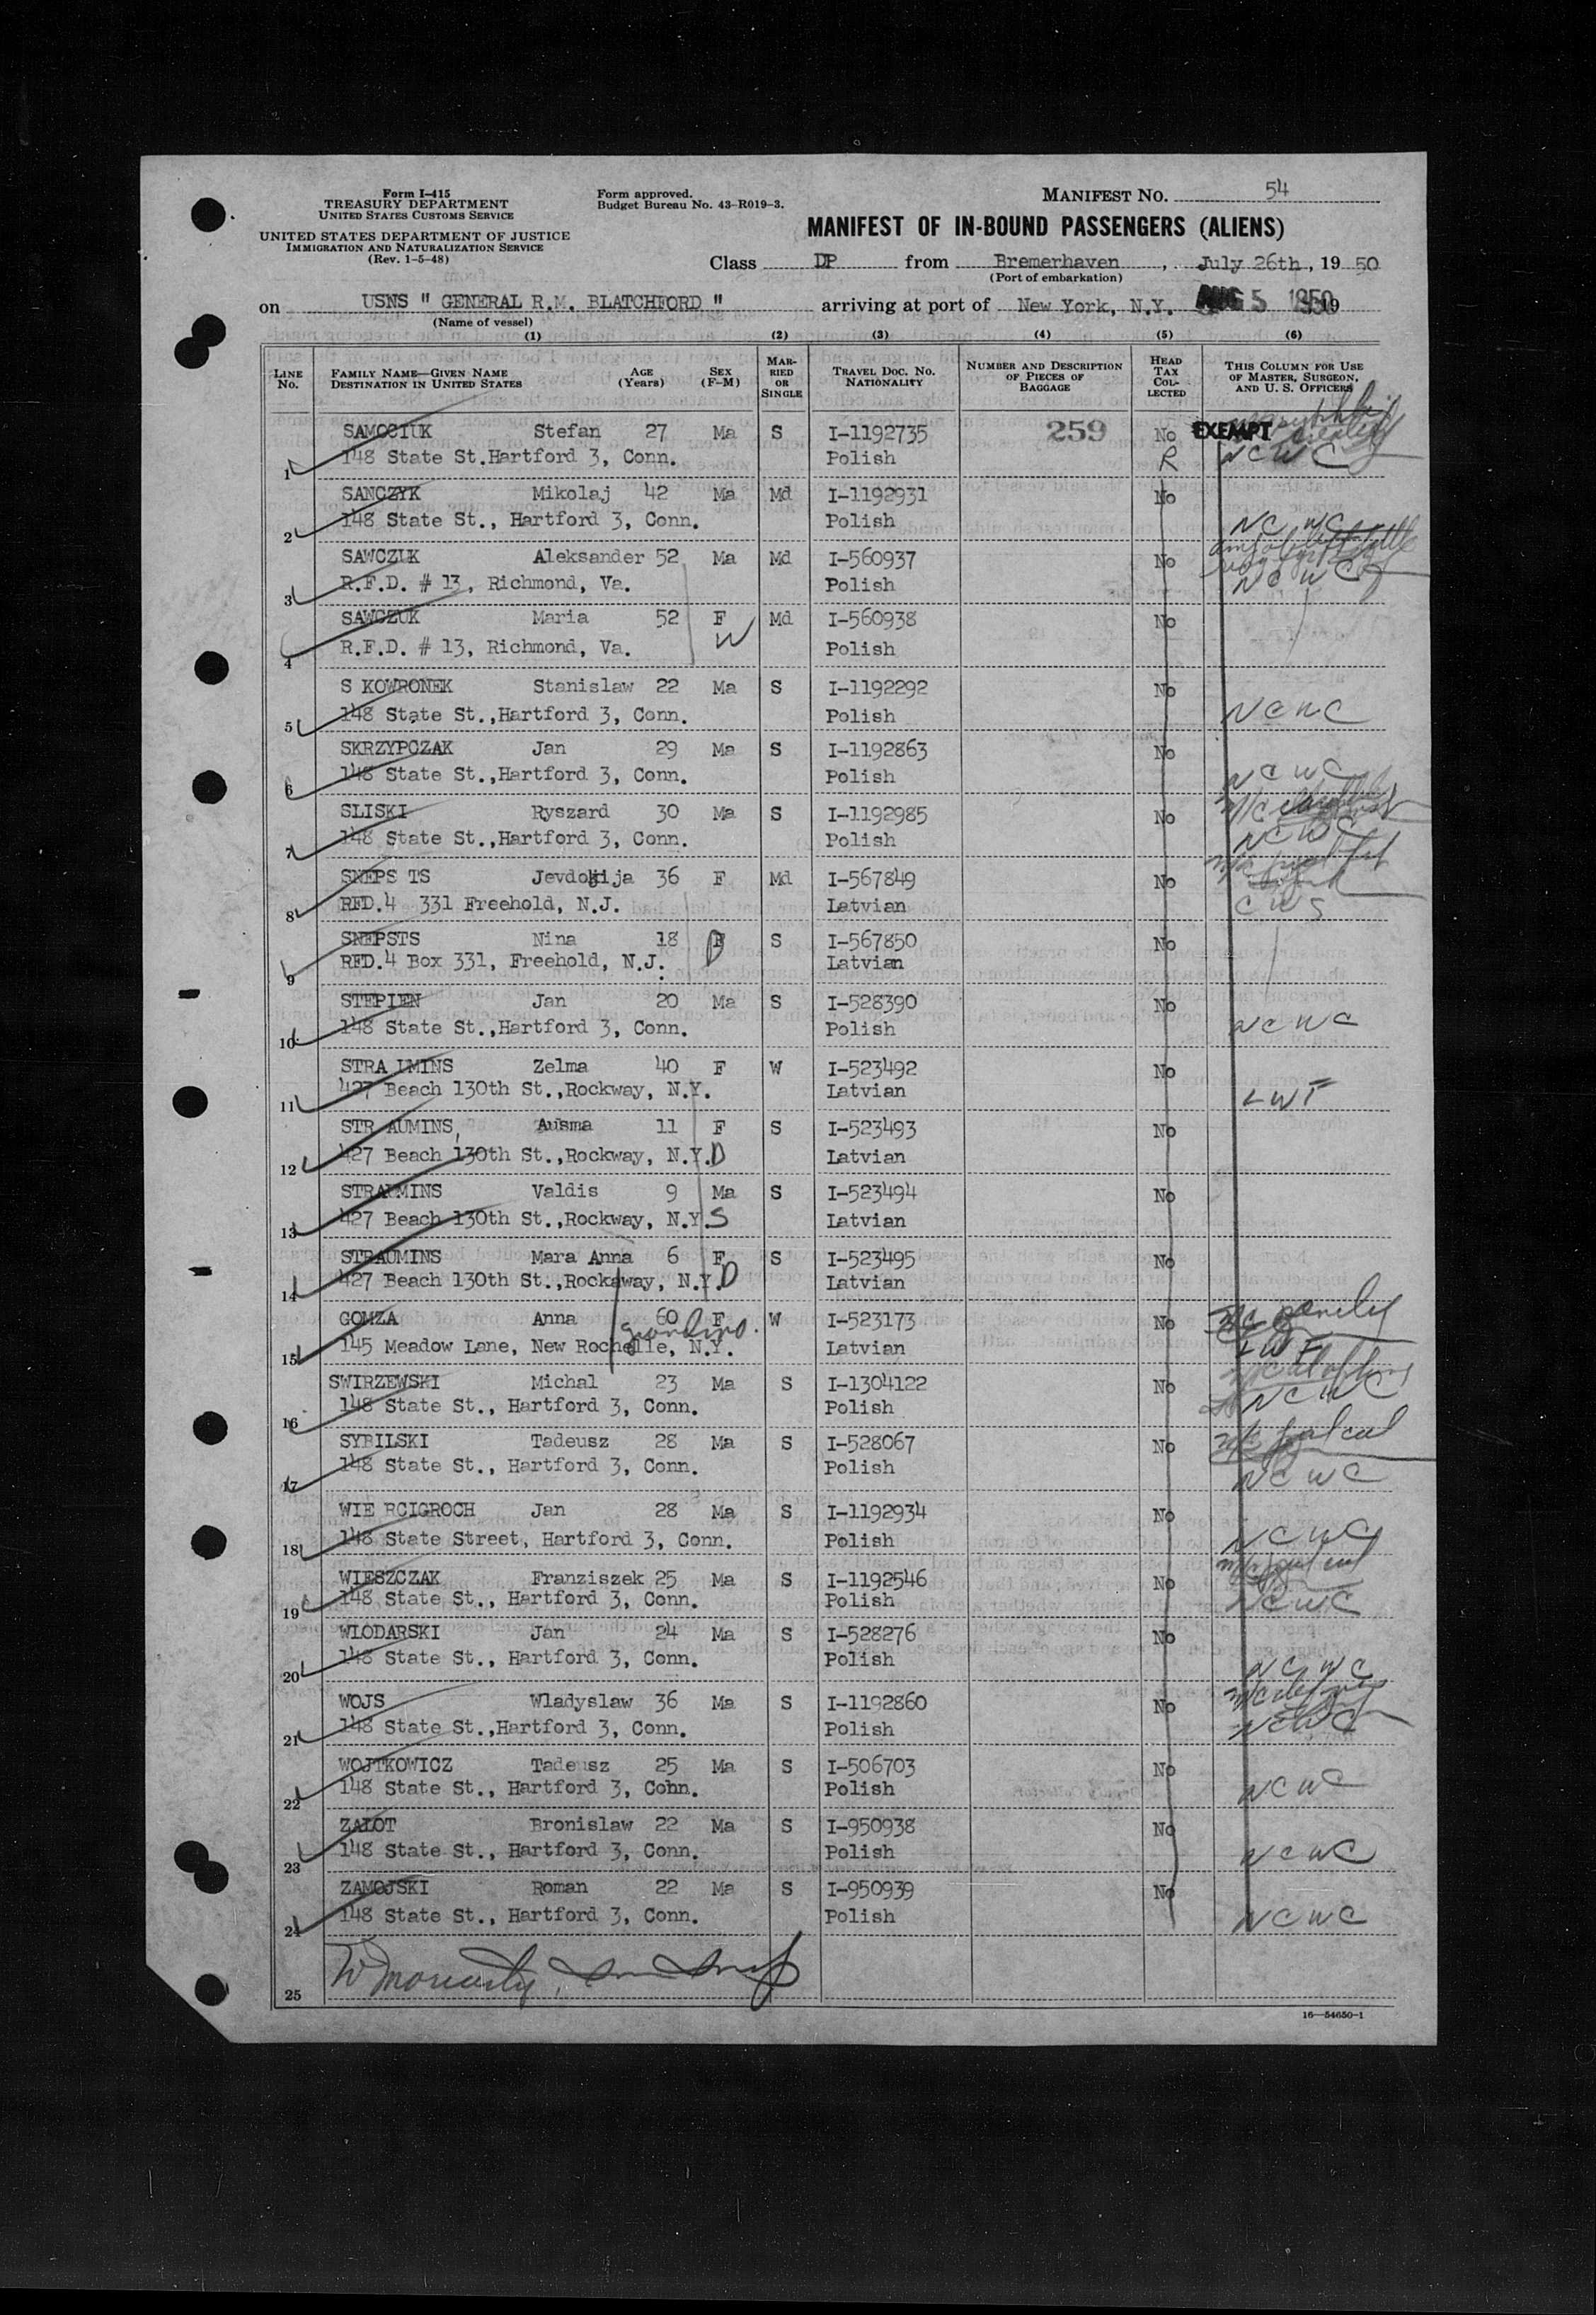 Form I-415
TREASURY DEPARTMENT
UNITED STATES CUSTOMS SERVICE
UNITED STATES DEPARTMENT OF JUSTICE
IMMIGRATION AND NATURALIZATION SERVICE
(Rev. 1-5-48)
Form approved.
Budget Bureau No. 43-R019-3.
MANIFEST NO. 54
MANIFEST OF IN-BOUND PASSENGERS (ALIENS)
Class DP from Bremerhaven, July 26th, 19 50
(Port of embarkation)
on USNS " GENERAL R.M. BLATCHFORD " arriving at port of New York, N.Y. AUG 5 1950 19
(Name of vessel)
(1) (2) (3) (4) (5) (6)
LINE NO. FAMILY NAME—GIVEN NAME DESTINATION IN UNITED STATES AGE (YEARS) SEX (F-M) MARRIED OR SINGLE TRAVEL DOC. NO. NATIONALITY NUMBER AND DESCRIPTION OF PIECES OF BAGGAGE HEAD TAX COLLECTED THIS COLUMN FOR USE OF MASTER, SURGEON, AND U. S. OFFICERS
SAMOCIUK Stefan 27 Ma S I-1192735 259 No EXEMPT
1 148 State St.Hartford 3, Conn. Polish R NCWC
SANCZYK Mikolaj 42 Ma Md I-1192931 No
2 148 State St., Hartford 3, Conn. Polish NCWC
SAWCZUK Aleksander 52 Ma Md I-560937 No
3 R.F.D. # 13, Richmond, Va. Polish NCWC
SAWCZUK Maria 52 F Md I-560938 No
4 R.F.D. # 13, Richmond, Va. W Polish
S KOWRONEK Stanislaw 22 Ma S I-1192292 No
5 148 State St.,Hartford 3, Conn. Polish NCWC
SKRZYPCZAK Jan 29 Ma S I-1192863 No
6 148 State St.,Hartford 3, Conn. Polish NCWC
SLISKI Ryszard 30 Ma S I-1192985 No
7 148 State St.,Hartford 3, Conn. Polish NCWC
SNEPS TS Jevdokija 36 F Md I-567849 No
8 RFD.4 331 Freehold, N.J. Latvian CWS
SNEPSTS Nina 18 F D S I-567850 No
9 RFD.4 Box 331, Freehold, N.J. Latvian
STEPIEN Jan 20 Ma S I-528390 No
10 148 State St.,Hartford 3, Conn. Polish NCWC
STRA IMINS Zelma 40 F W I-523492 No
11 427 Beach 130th St.,Rockway, N.Y. Latvian LWF
STR AUMINS, Ausma 11 F S I-523493 No
12 427 Beach 130th St.,Rockway, N.Y. D Latvian
STRAUMINS Valdis 9 Ma S I-523494 No
13 427 Beach 130th St.,Rockway, N.Y. S Latvian
STRAUMINS Mara Anna 6 F S I-523495 No
14 427 Beach 130th St.,Rockaway, N.Y. D Latvian
GOMZA Anna 60 F W I-523173 No
15 145 Meadow Lane, New Rochelle, N.Y. Latvian LWF
SWIRZEWSKI Michal 23 Ma S I-1304122 No
16 148 State St., Hartford 3, Conn. Polish NCWC
SYBILSKI Tadeusz 28 Ma S I-528067 No
17 148 State St., Hartford 3, Conn. Polish NCWC
WIE RCIGROCH Jan 28 Ma S I-1192934 No
18 148 State Street, Hartford 3, Conn. Polish NCWC
WIESZCZAK Franziszek 25 Ma S I-1192546 No
19 148 State St., Hartford 3, Conn. Polish NCWC
WLODARSKI Jan 24 Ma S I-528276 No
20 148 State St., Hartford 3, Conn. Polish NCWC
WOJS Wladyslaw 36 Ma S I-1192860 No
21 148 State St.,Hartford 3, Conn. Polish NCWC
WOJTKOWICZ Tadeusz 25 Ma S I-506703 No
22 148 State St., Hartford 3, Conn. Polish NCWC
ZALOT Bronislaw 22 Ma S I-950938 No
23 148 State St., Hartford 3, Conn. Polish NCWC
ZAMOJSKI Roman 22 Ma S I-950939 No
24 148 State St., Hartford 3, Conn. Polish NCWC
25 W Moriarty,
16—54650-1